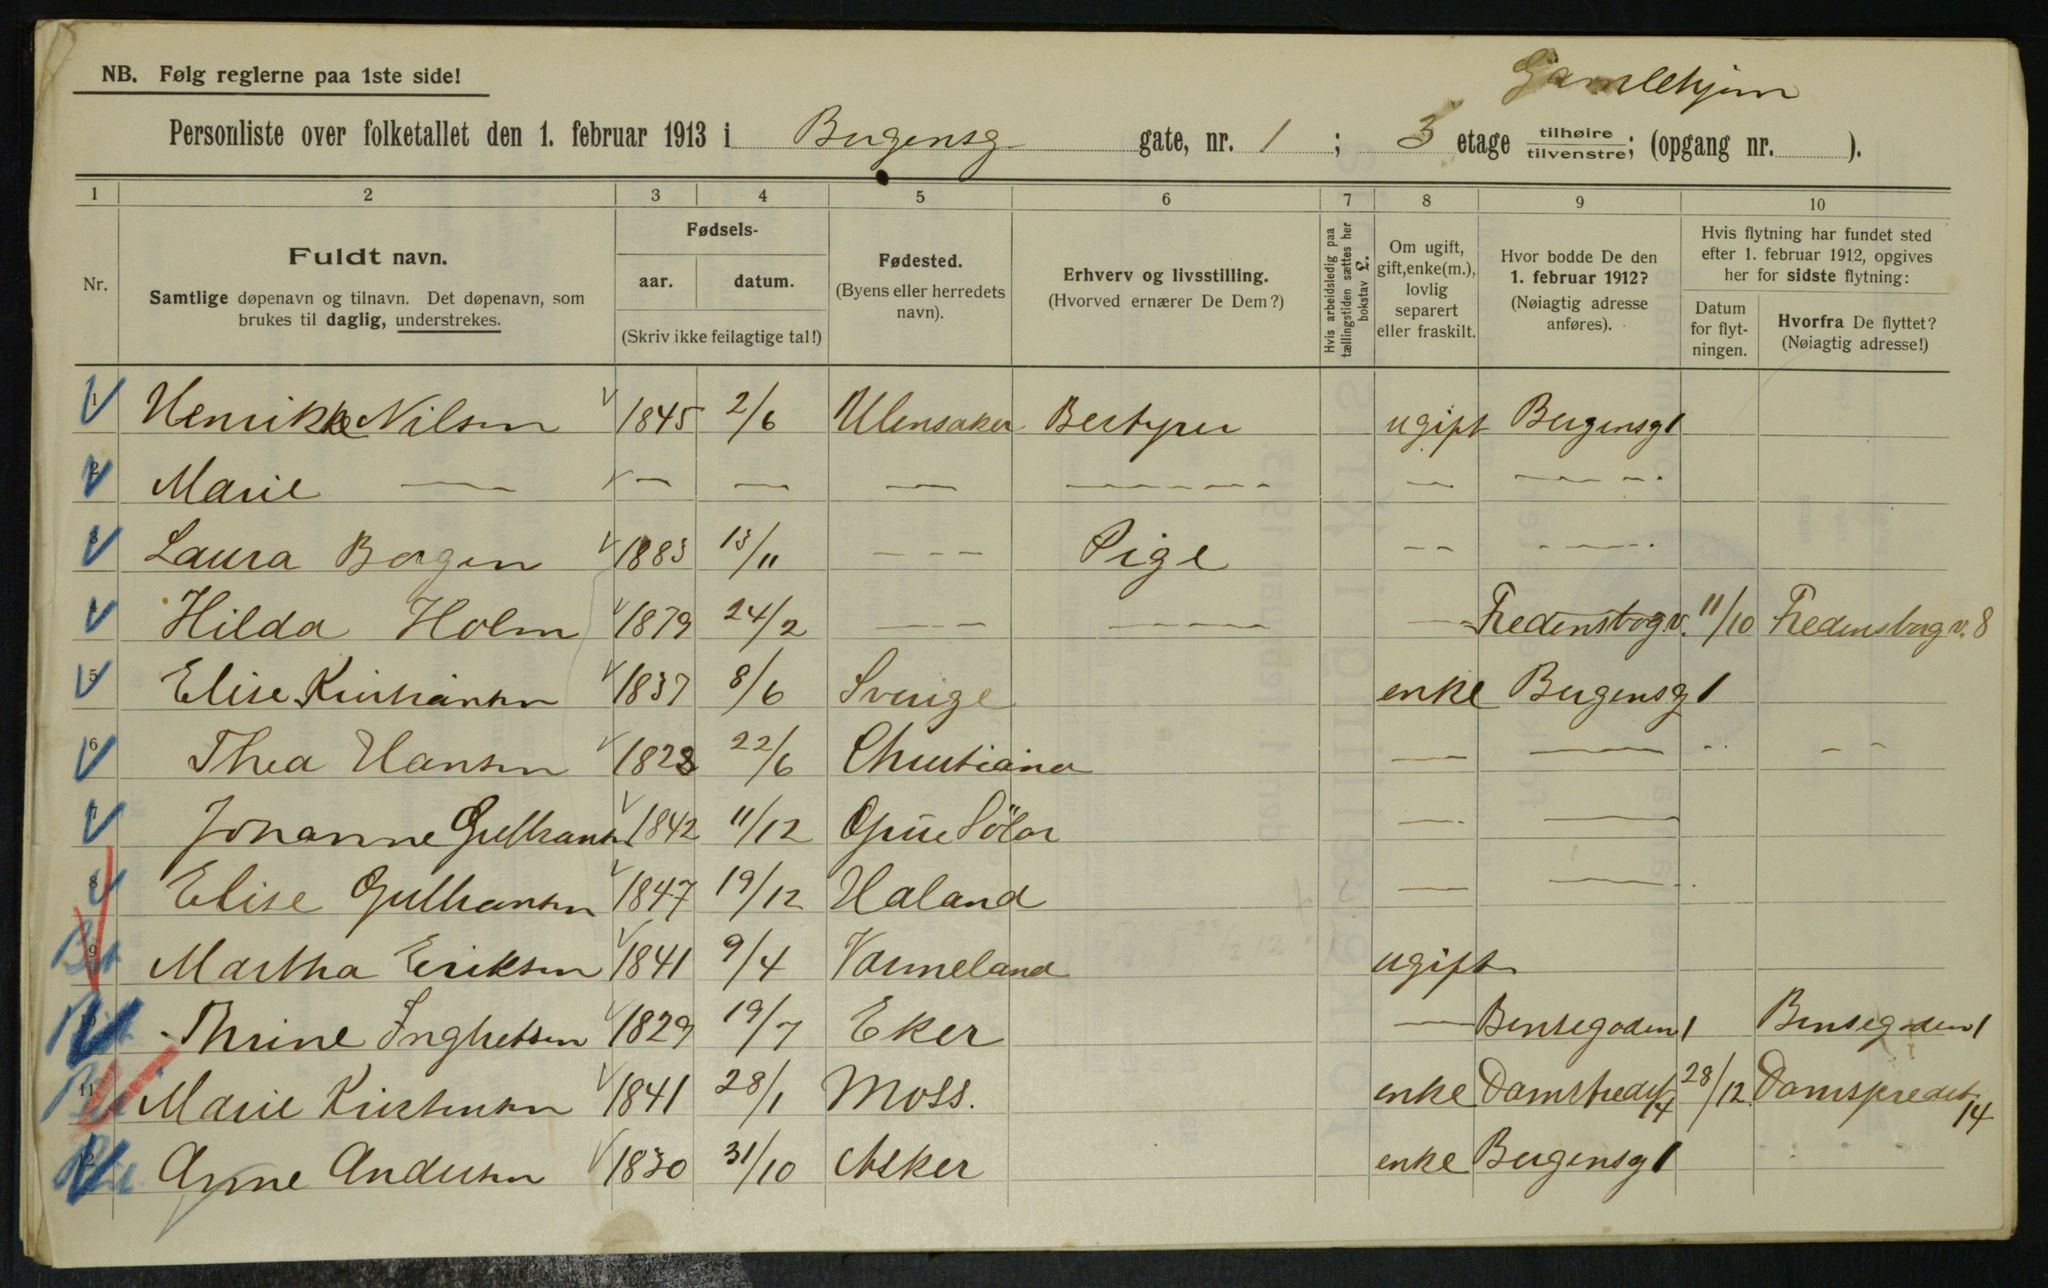 NB. Følg reglerne paa 1ste side!
Gamlehjem
Personliste over folketallet den 1. februar 1913 i Bergensg gate, nr. 1 ; 3 etage tilhøire/tilvenstre; (opgang nr. ).
1 2 3 4 5 6 7 8 9 10
Nr.
Fuldt navn.
Samtlige døpenavn og tilnavn. Det døpenavn, som
brukes til daglig, understrekes.
Fødsels-
aar. datum.
(Skriv ikke feilagtige tal!)
Fødested.
(Byens eller herredets
navn).
Erhverv og livsstilling.
(Hvorved ernærer De Dem?)
Hvis arbeidsledig paa
tællingstiden sættes her
bokstav L.
Om ugift,
gift, enke(m.),
lovlig
separert
eller fraskilt.
Hvor bodde De den
1. februar 1912?
(Nøiagtig adresse
anføres).
Hvis flytning har fundet sted
efter 1. februar 1912, opgives
her for sidste flytning:
Datum
for flyt-
ningen.
Hvorfra De flyttet?
(Nøiagtig adresse!)
1 Henrikke Nilsen 1845 2/6 Ulensaker Bestyrer ugift Bergensg 1
2 Marie — — — — — — — — — — — — — —
3 Laura Borgen 1883 13/11 — — — Pige — — — — —
4 Hilda Holm 1879 24/2 — — — — — — — — Fredensborgv. 11/10 Fredensborgv. 8
5 Elise Kristiansen 1837 8/6 Sverige enke Bergensg 1
6 Thea Hansen 1828 22/6 Christiania — — — — — —
7 Johanne Gulbransen 1842 11/12 Grue Solør — — — —
8 Elise Gulbransen 1847 19/12 Haland — — — —
9 Martha Eriksen 1841 9/4 Varmeland ugift
10 Thrine Ingbretsen 1829 19/7 Eker — Bensegaden 1 Bensegaden 1
11 Marie Kristensen 1841 28/1 Moss. enke Damstredet 14 28/12 Damstredet 14
12 Anne Andersen 1830 31/10 Asker enke Bergensg 1